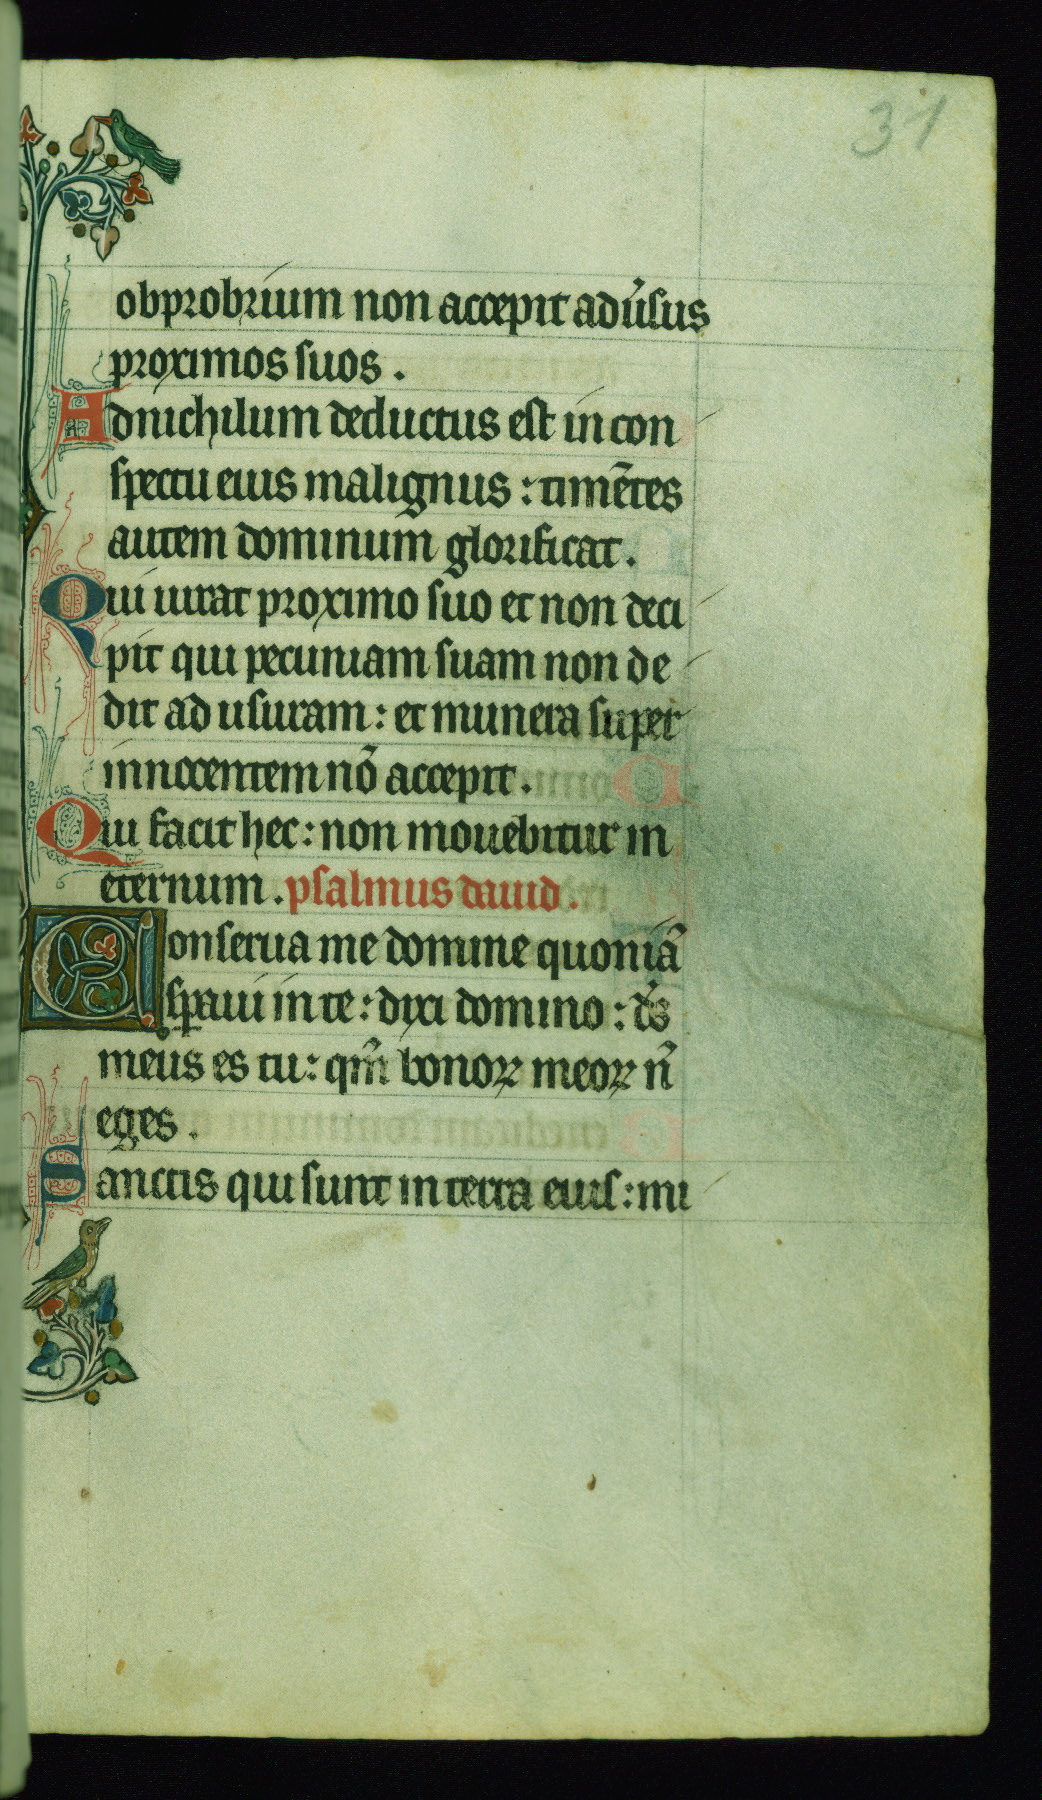 31
obprobrium non accepit adu̾sus
proximos suos .
Adnichilum deductus est in con
spectu eius malignus : timētes
autem dominum glorificat .
Qui iurat proximo suo et non deci
pit qui pecuniam suam non de
dit ad usuram : et munera super
innocentem nō accepit .
Qui facit hec : non mouebitur in
eternum . psalmus dauid .
Conserua me domine quoniā
sꝑaui in te : dixi domino : ds̄
meus es tu : qm̄ bonoꝝ meoꝝ n̄
eges .
Sanctis qui sunt in terra eius : mi